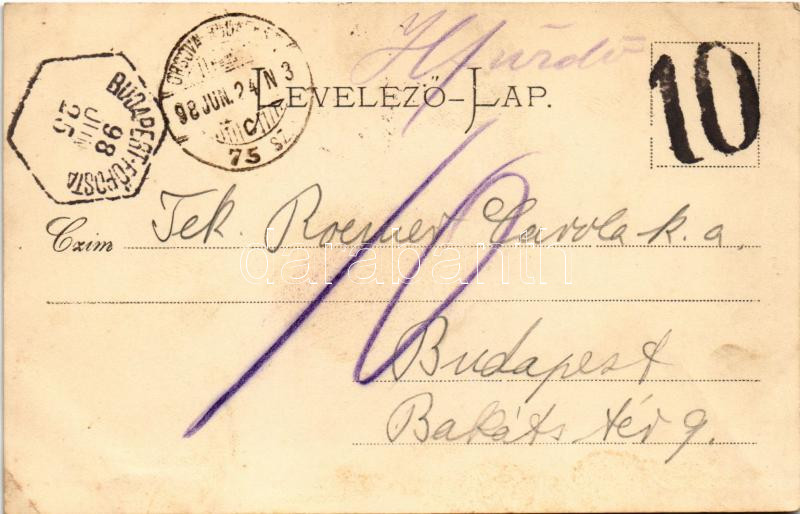 H fürdő
10
LEVELEZŐ-LAP.
ORSOVA BUDAPEST
98 JUN. 24 N 3
C
75 SZ.
BUDAPEST-FŐPOSTA
98
JUN
25
Czim Tek. Roemer Carola k. a.
10
Budapest
Bakáts tér 9.
darabanth